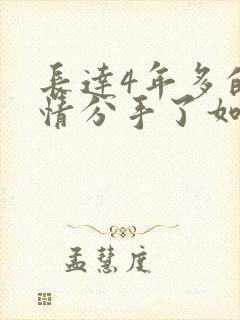 長達4年多的
情分手了如
孟慧庭